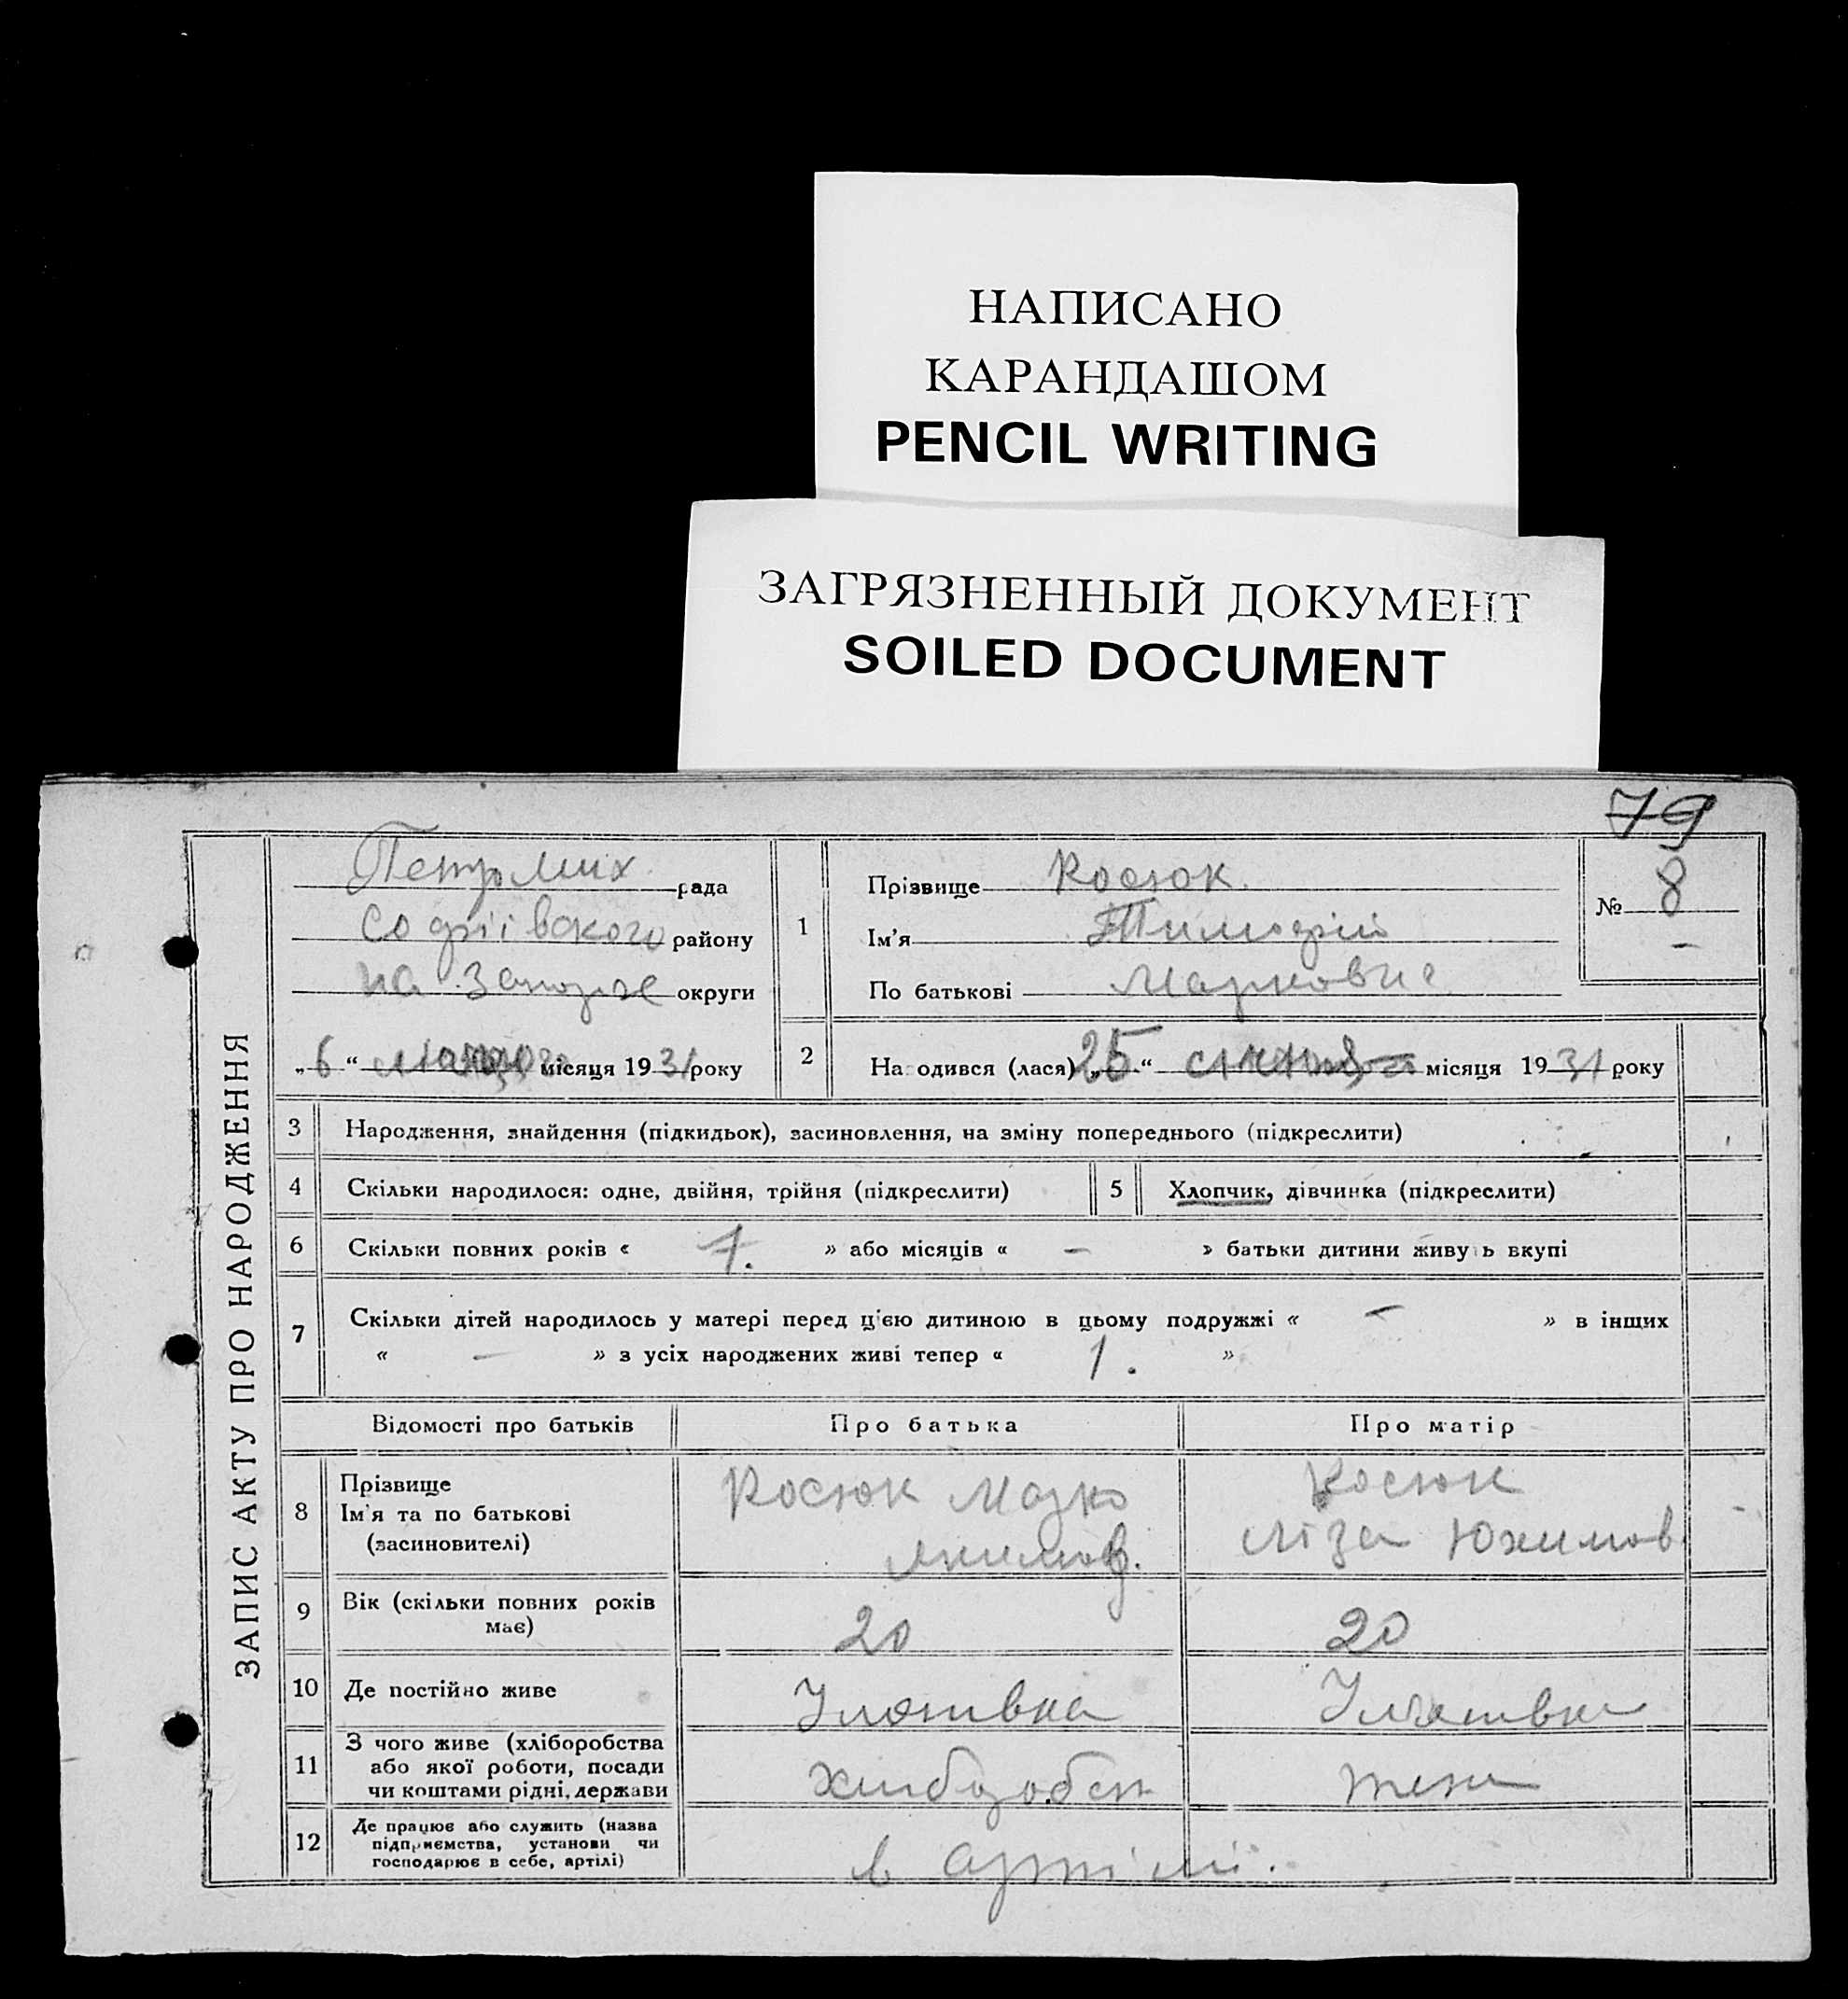 НАПИСАНО
КАРАНДАШОМ
PENCIL WRITING
ЗАГРЯЗНЕННЫЙ ДОКУМЕНТ
SOILED DOCUMENT
79
ЗАПИС АКТУ ПРО НАРОДЖЕННЯ
рада
Софіївского району
на округи
„6“ місяця 1931 року
1
Прізвище Косюк
Ім'я Тимофій
По батькові Маркович
№ 8
2
Народився (лася) „25“ січня місяця 1931 року
3 Народження, знайдення (підкидьок), засиновлення, на зміну попереднього (підкреслити)
4 Скільки народилося: одне, двійня, трійня (підкреслити)
5 Хлопчик, дівчинка (підкреслити)
6 Скільки повних років « 1. » або місяців « – » батьки дитини живуть вкупі
7 Скільки дітей народилось у матері перед цією дитиною в цьому подружжі « – » в інших
« – » з усіх народжених живі тепер « 1. »
Відомості про батьків Про батька Про матір
8 Прізвище
Ім'я та по батькові
(засиновителі)
Косюк Марко
Якимов.
Косюк
Ліза Юхимов
9 Вік (скільки повних років
має)
20
20
10 Де постійно живе
11 З чого живе (хліборобства
або якої роботи, посади
чи коштами рідні, держави
жена
12 Де працює або служить (назва
підприємства, установи чи
господарює в себе, артілі)
в артілі.